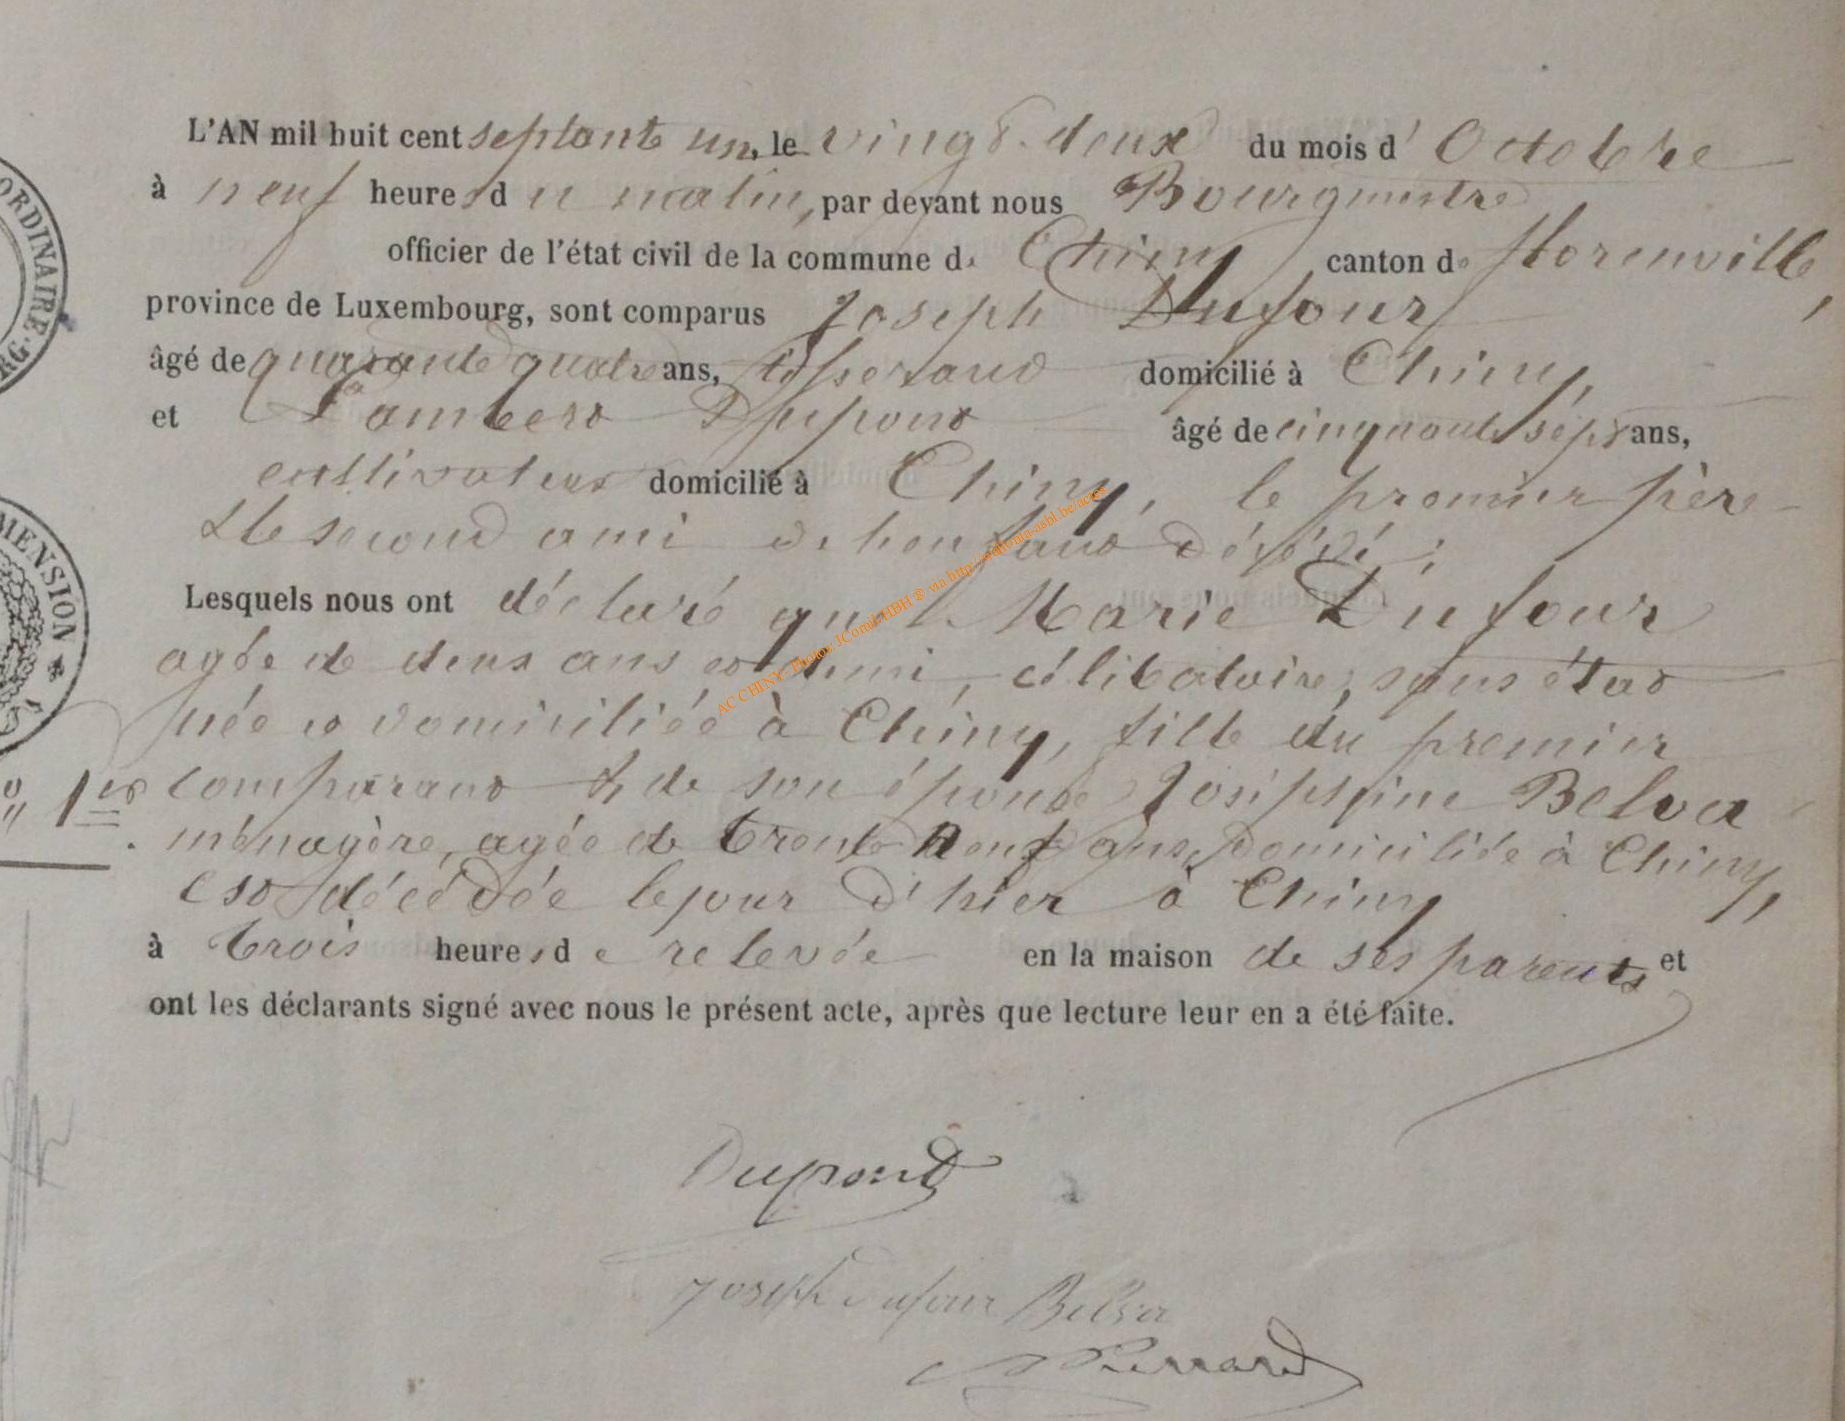 L'AN mil huit cent septante un, le vingt deux du mois d' Octobre
à neuf heures du matin, par devant nous Bourgmestre
officier de l'état civil de la commune de Chiny canton de florenville,
province de Luxembourg, sont comparus Joseph Dufour
âgé de quarante quatre ans, tisserand domicilié à Chiny,
et Lambert Dupont âgé de cinquante sept ans,
cultivateur domicilié à Chiny, le premier père
& le second ami de l'enfant décédé ;
Lesquels nous ont déclaré que Marie Dufour
agée de deux ans et demi, célibataire, sans état
née et domiciliée à Chiny, fille du premier
comparant & de son épouse Joséphine Belva
ménagère, agée de trente neuf ans, domiciliée à Chiny,
est décédée le jour d'hier à Chiny
à trois heures de relevée en la maison de ses parents et
ont les déclarants signé avec nous le présent acte, après que lecture leur en a été faite.
Dupont
Joseph Dufour Belva
Pierrard
ORDINAIRE.
RG.
MENSION
AC CHINY-Photos JComil-HBH ® via